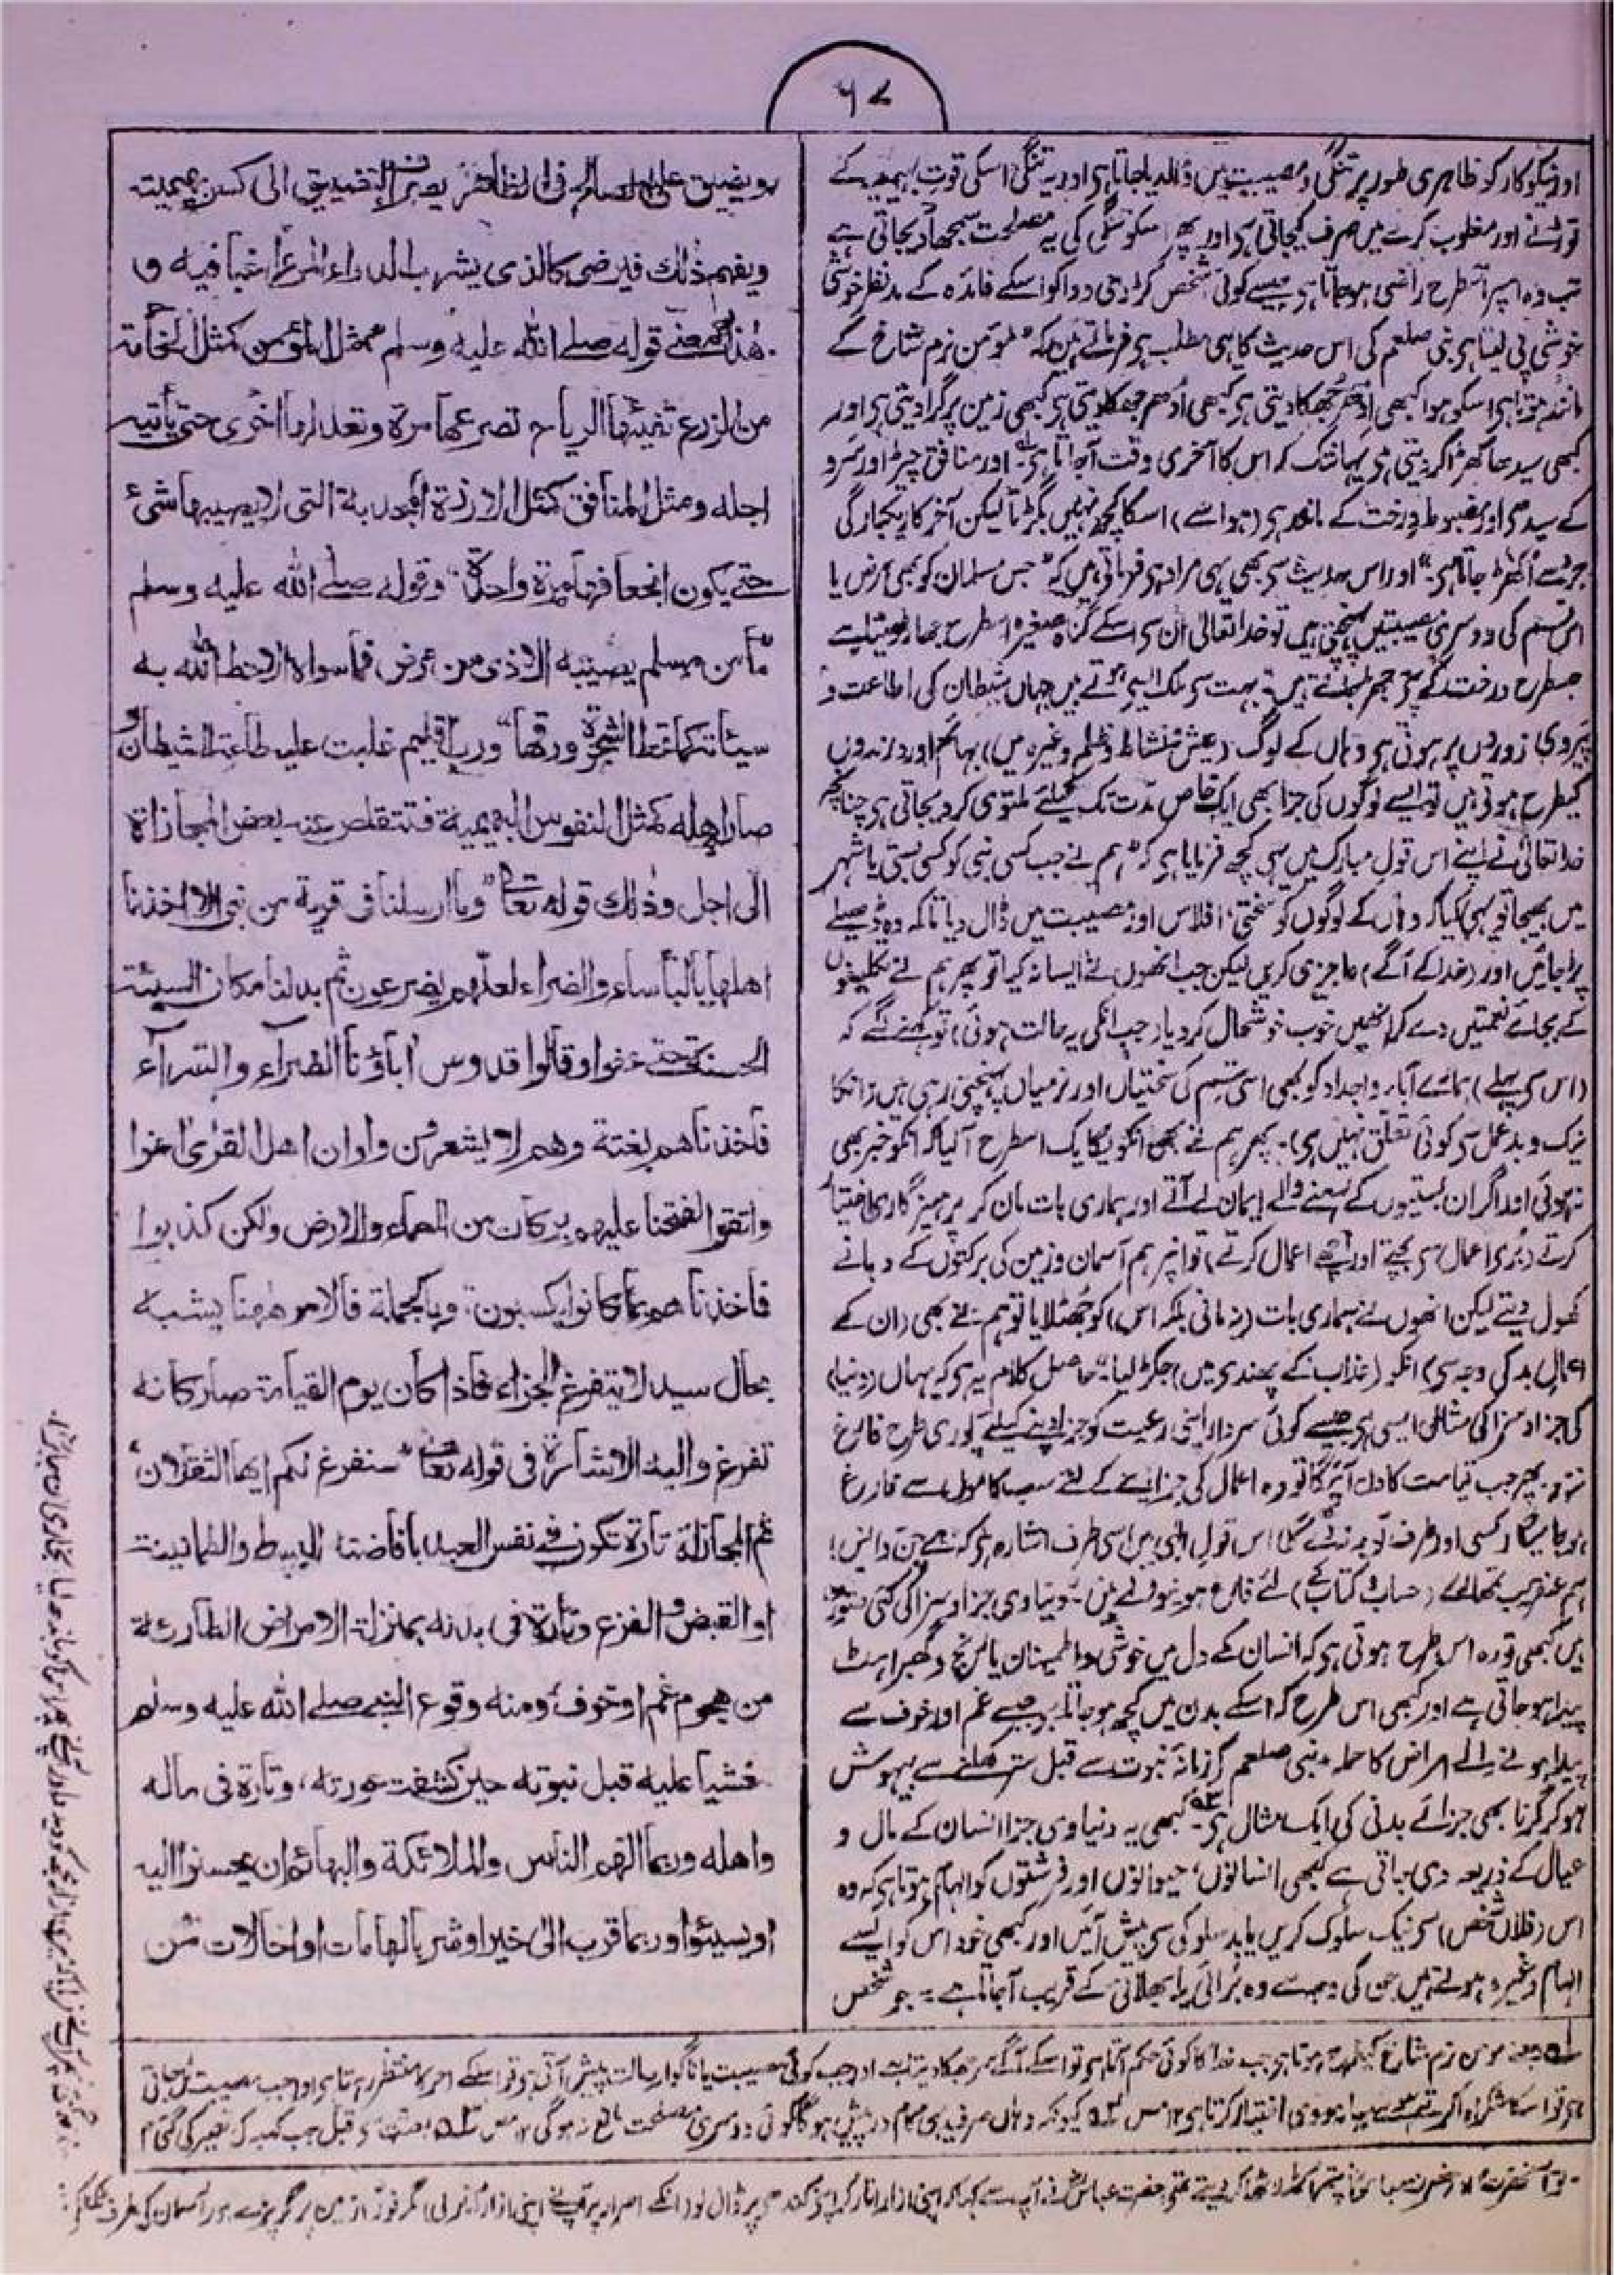 ۶۷
اور نیکوکار کو ظاہری طور پر تنگی و مصیبت میں ڈالدیا جاتا ہی اور یہ تنگی اسکی قوت بہیمیہ کے
توڑنے اور مغلوب کرنے میں صرف کیجاتی ہی اور پھر اسکو تنگی کی یہ مصلحت سمجھا دیجاتی ہے
تب وہ اسپر اسطرح راضی ہوجاتا ہی جیسے کوئی شخص کڑوی دوا کو اسکے فائدہ کے مدنظر خوشی
خوشی پی لیتا ہی نبی صلعم کی اس حدیث کا یہی مطلب ہی فرماتے ہیں کہ "مومن نرم شاخ کے
مانند ہوتا ہی اسکو ہوا کبھی ادھر جھکا دیتی ہی کبھی اُدھر جھکا دیتی ہی کبھی زمین پر گرا دیتی ہی اور
کبھی سیدھا کھڑا کر دیتی ہی یہانتک کہ اس کا آخری وقت آجاتا ہی اور منافق چیڑ اور سرو
کے سیدھی اور مضبوط درخت کے مانند ہی (ہوا سے) اسکا کچھ نہیں بگڑتا لیکن آخرکار یکبارگی
جڑ سے اُکھڑ جاتا ہی" اور اس حدیث سی بھی یہی مراد ہی فرماتی ہیں کہ "جس مسلمان کو بھی مرض یا
اس قسم کی دوسری مصیبتیں پہنچتی ہیں تو خدا تعالیٰ ان سی اسکے گناہ صغیرہ اسطرح جھاڑ دیتا ہے
جسطرح درخت کے پتے جھڑ جاتے ہیں" بہت سی ملک ایسے ہوتے ہیں جہاں شیطان کی اطاعت و
پیروی زوروں پر ہوتی ہی وہاں کے لوگ (عیش و نشاط و ظلم وغیرہ میں) بہائم اور درندوں
کیطرح ہوتی ہیں تو ایسے لوگوں کی جزا بھی ایک خاص مدت تک کیلئے ملتوی کر دیجاتی ہی چنانچہ
خدا تعالیٰ نے اپنے اس قول مبارک میں یہی کچھ فرمایا ہی کہ "ہم نے جب کسی نبی کو کسی بستی یا شہر
میں بھیجا تو یہی کیا کہ وہاں کے لوگوں کو سختی، افلاس اور مصیبت میں ڈال دیا تاکہ وہ ڈھیلے
پڑ جائیں اور (خدا کے آگے) عاجزی کریں لیکن جب انھوں نے ایسا نہ کیا تو پھر ہم نے تکلیفوں
کے بجائے نعمتیں دے کر انھیں خوب خوشحال کر دیا (جب انکی یہ حالت ہوئی) تو کہنے لگے کہ
(اس سی پہلے) ہمارے آباء و اجداد کو بھی اسی قسم کی سختیاں اور نرمیاں پہنچتی رہی ہیں (انکا
نیک و بد عمل سی کوئی تعلق نہیں ہی)۔ پھر ہم نے بھی انکو یکایک اسطرح آلیا کہ انکو خبر بھی
نہوئی اور اگر ان بستیوں کے بسنے والے ایمان لے آتے اور ہماری بات مان کر پرہیزگاری اختیار
کرتے (بُری اعمال سی بچتے اور اچھے اعمال کرتے) تو انپر ہم آسمان و زمین کی برکتوں کے دہانے
کھول دیتے لیکن انھوں نے ہماری بات (نہ مانی بلکہ اس) کو جھٹلایا تو ہم نے بھی (ان کے
اعمال بد کی وجہ سی) انکو (عذاب کے پھندی میں) جکڑ لیا" حاصل کلام یہ ہی کہ یہاں (دنیا)
کی جزا و سزا کی مثال ایسی ہی جیسے کوئی سردار اپنی رعیت کو جزا دینے کیلئے پوری طرح فارغ
نہو۔ پھر جب قیامت کا دن آئیگا تو وہ اعمال کی جزا دینے کے لئے سب کاموں سے فارغ
ہو جائیگا کسی اور طرف توجہ نہ دے گا اس قول الٰہی میں اسی طرف اشارہ ہی کہ "اے جن و انس!
ہم عنقریب تمھارے (حساب و کتاب کے) لئے فارغ ہونیوالے ہیں"۔ دنیاوی جزا و سزا کی کئی صورتیں
ہیں کبھی تو وہ اس طرح ہوتی ہی کہ انسان کے دل میں خوشی و اطمینان یا رنج و گھبراہٹ
پیدا ہو جاتی ہے اور کبھی اس طرح کہ اسکے بدن میں کچھ ہو جاتا ہی جیسے غم اور خوف سے
پیدا ہونے والے امراض کا حملہ۔ نبی صلعم کا زمانۂ نبوت سے قبل ستر کھلنے سے بیہوش
ہو کر گرنا بھی جزائے بدنی کی ایک مثال ہی۔ کبھی یہ دنیاوی جزا انسان کے مال و
عیال کے ذریعہ دی جاتی ہے کبھی انسانوں، حیوانوں اور فرشتوں کو الہام ہوتا ہی کہ وہ
اس (فلاں شخص) سی نیک سلوک کریں یا بد سلوکی سی پیش آئیں اور کبھی خود اس کو ایسے
الہام وغیرہ ہوتے ہیں جن کی وجہ سے وہ بُرائی یا بھلائی کے قریب آجاتا ہے۔ جو شخص
ويضيق على الصالح فى الظاهر يصرف التضييق الى كسر بهيميته
ويفهم ذلك فيرضى كالذى يشرب الدواء المر راغبا فيه و
هذا معنى قوله صلے الله عليه وسلم "مثل المؤمن كمثل الخامة
من الزرع تفيئها الرياح تصرعها مرة وتعدلها اخرى حتى ياتيه
اجله ومثل المنافق كمثل الارزة المجدبة التى لا يصيبها شئ
حتے يكون انجعافها مرة واحدة" وقوله صلے الله عليه وسلم
"ما من مسلم يصيبه اذى من مرض فما سواه الا حط الله به
سيئاته كما تحط الشجرة ورقها" ورب اقليم غلبت عليه طاعة الشيطان و
صار اهله كمثل النفوس البهيمية فتتقلص عنه بعض المجازاة
الى اجل وذلك قوله تعا "وما ارسلنا فى قرية من نبى الا اخذنا
اهلها بالبأساء والضراء لعلهم يضرعون ثم بدلنا مكان السيئة
الحسنة حتے عفوا وقالوا قد مس اباؤنا الضراء والسراء
فأخذناهم بغتة وهم لا يشعرون ولو ان اهل القرى امنوا
واتقوا لفتحنا عليهم بركات من السماء والارض ولكن كذبوا
فأخذناهم بما كانوا يكسبون" وبالجملة فالامر ههنا يشبه
بحال سيد لا يتفرغ للجزاء فاذا كان يوم القيامة صار كانه
تفرغ واليه الاشارة فى قوله تعا "سنفرغ لكم ايها الثقلان"
ثم المجازاة تارة تكون فى نفس العبد بافاضة البسط والطمانينة
او القبض والفزع وتارة فى بدنه بمنزلة الامراض الطارئة
من هجوم غم او خوف، ومنه وقوع النبى صلے الله عليه وسلم
مغشيا عليه قبل نبوته حين كشفت عورته، وتارة فى ماله
واهله وربما الهم الناس والملائكة والبهائم ان يحسنوا اليه
او يسيئوا وربما قرب الى خير او شر بالهامات او احالات من
یعنے مومن نرم شاخ کیطرح ہوتا ہی جب خدا کا کوئی حکم آتا ہی تو اسکے آگے سر جھکا دیتا ہے اور جب کوئی مصیبت یا ناگوار حالت پیش آتی ہی تو اسکے اجر کا منتظر رہتا ہی اور جب مصیبت ٹل جاتی
ہی تو اسکا شکر ادا کرتا ہے اختیار کرتا ہی کیونکہ وہاں صرف یہی کام در پیش ہوگا کوئی دوسری مصلحت مانع نہ ہوگی قبل جب کعبہ کی تعمیر کی گئی
تو آنحضرت اور حضرت عباس پتھر اٹھا کر دیتے تھے حضرت عباس نے آپ سے کہا کہ اپنی ازار اتار کر اپنے کندھی پر ڈال لو انکے اصرار پر آپ نے اپنی ازار اتار لی مگر فوراً زمین پر گر پڑے اور آسمان کی طرف